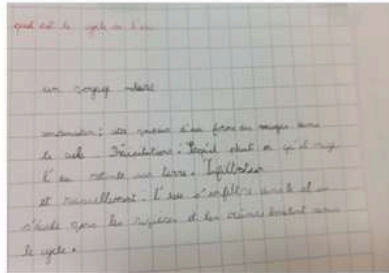 quel est le cycle de l'eau
un voyage
condensation : cette vapeur d'eau forme des nuages dans
le ciel. Précipitations : Lorsqu'il pleut ou qu'il neige
l'eau retombe sur terre. Infiltration
et ruissellement. l'eau s'infiltre dans le sol ou
s'écoule dans les rivières et les océans bouclant ainsi
le cycle.